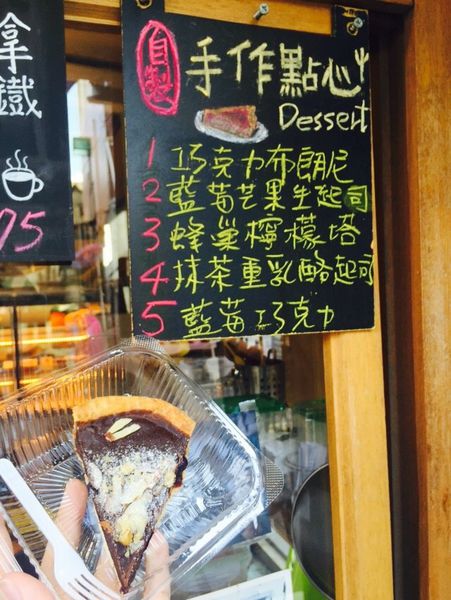 拿鐵
75
自製
手作點心
Dessert
1 巧克力布朗尼
2 藍莓芒果生起司
3 蜂巢檸檬塔
4 抹茶重乳酪起司
5 藍莓巧克力